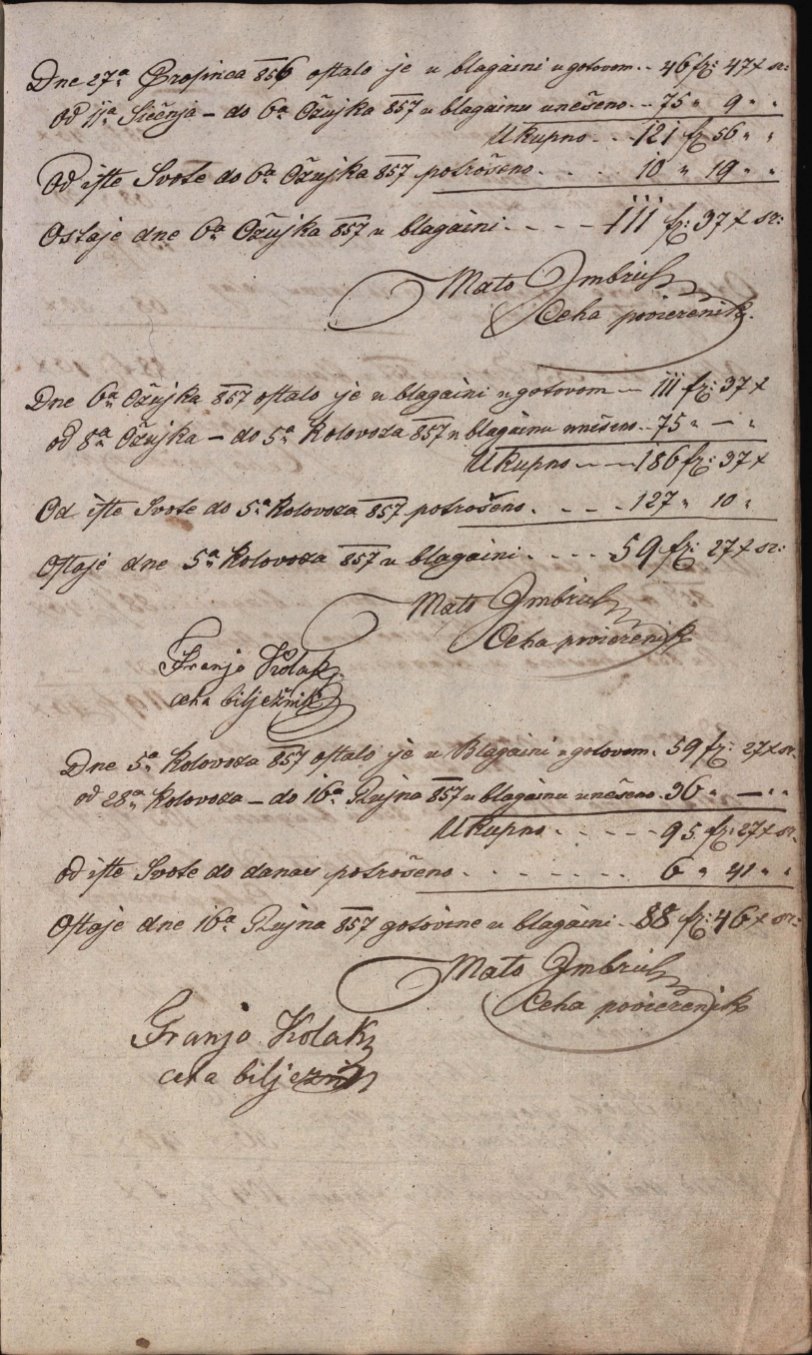 Dne 27a Prosinca 856 ostalo je u blagaini u gotovom .. 46 fr: 47 x sr:
Od 11a Siečnja – do 6a Ožujka 857 u blagainu unešeno .. 75 " 9 " "
Ukupno . . 121 fr 56 " "
Od iste Svote do 6a Ožujka 857 potrošeno . . . . 10 " 19 " "
Ostaje dne 6a Ožujka 857 u blagaini . - - - 111 fr: 37 x sr:
Mato Imbrich
Ceha povierenik.
Dne 6a Ožujka 857 ostalo je u blagaini u gotovom – 111 fr: 37 x
od 8a Ožujka – do 5a Kolovoza 857 u blagainu unešeno .. 75 " – "
Ukupno - - - 186 fr: 37 x
Od iste Svote do 5a Kolovoza 857 potrošeno . - - . 127 " 10 "
Ostaje dne 5a Kolovoza 857 u blagaini . - - - 59 fr: 27 x sr:
Mato Imbrich
Ceha povierenik
Franjo Kolak
ceha bilježnik
Dne 5a Kolovoza 857 ostalo je u Blagaini u gotovom . 59 fr: 27 x sr.
od 28a Kolovoza – do 16a Rujna 857 u blagainu unešeno . 36 " – " "
Ukupno . - - - - 95 fr: 27 x sr.
od iste Svote do danas potrošeno . . . . . . . . 6 " 41 " "
Ostaje dne 16a Rujna 857 gotovine u blagaini . 88 fr: 46 x sr:
Mato Imbrich
Ceha povierenik
Franjo Kolak
ceha bilježnik